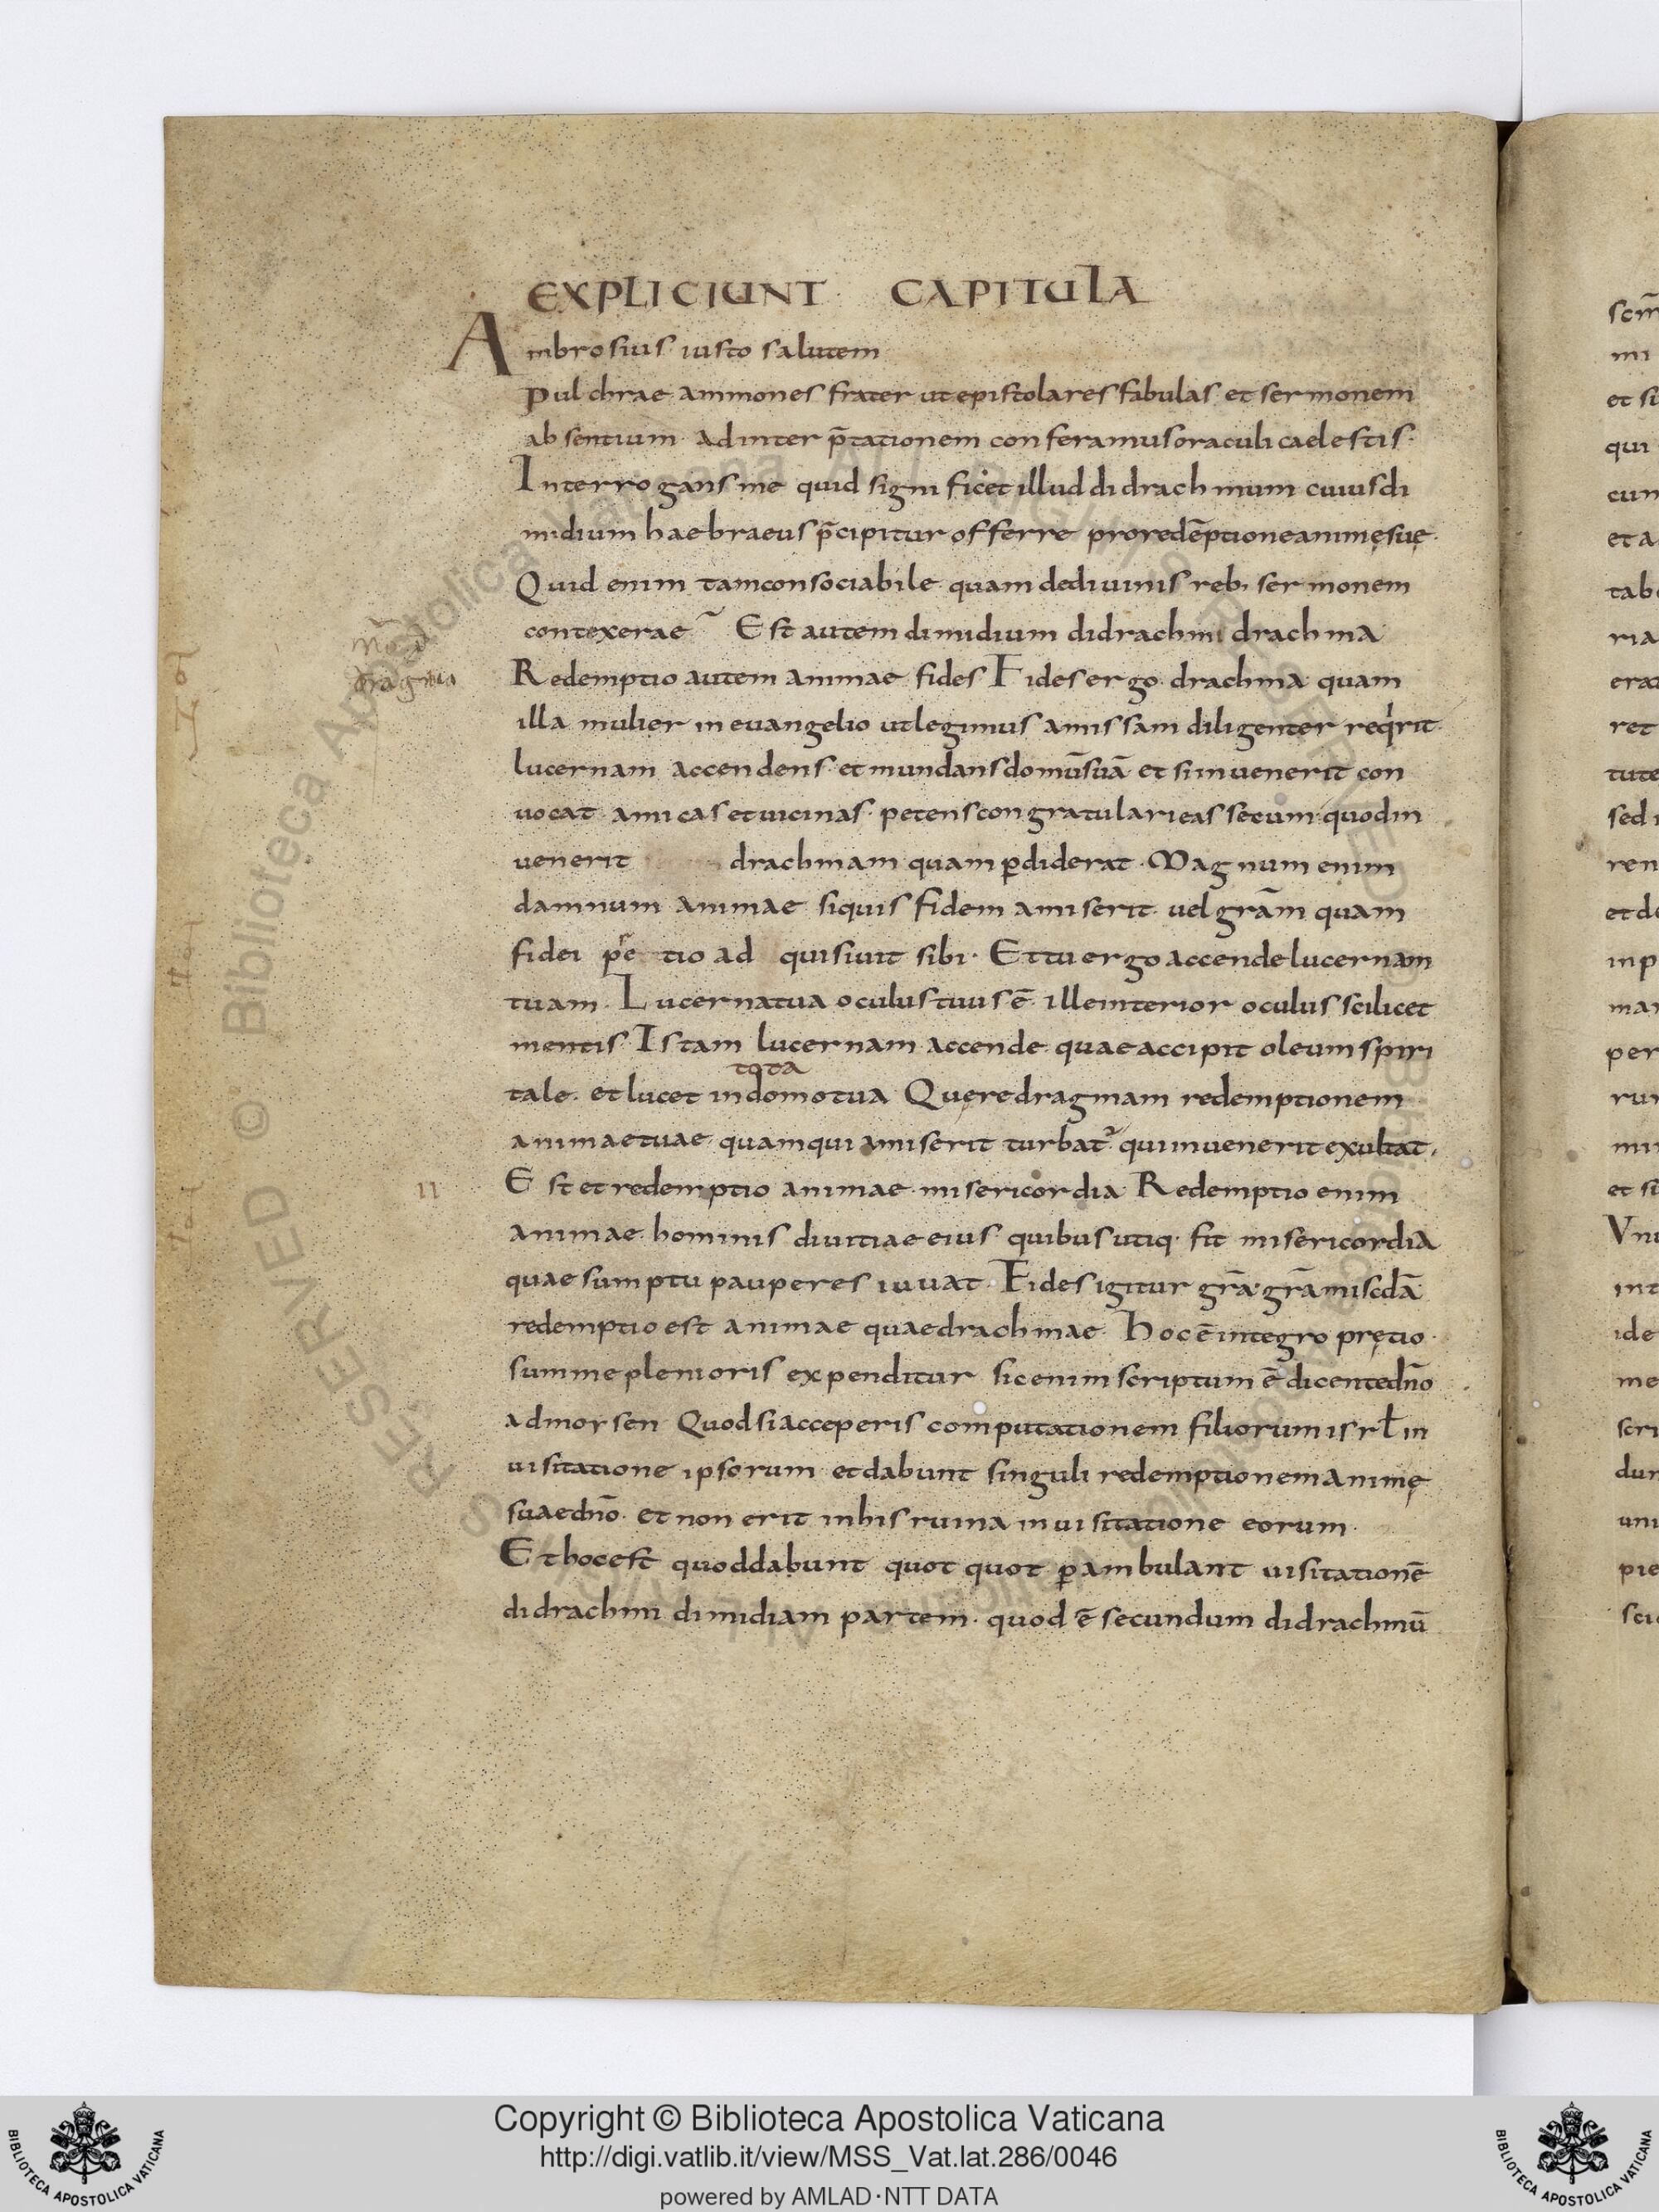 EXPLICIUNT CAPITULA
Ambrosius iusto salutem
Pulchrae ammones frater ut epistolares fabulas et sermonem
absentium. ad inter p̄tationem conferamus oraculi caelestis.
Interrogans me quid significet illud didrachmum cuius di
midium haebraeus p̄cipitur offerre pro redēptione animę suę.
Quid enim tam consociabile quam de diuinis reb; sermonem
contexerae Est autem dimidium didrachmi drachma
Redemptio autem animae fides Fides ergo drachma quam
illa mulier in euangelio ut legimus amissam diligenter reqrit
lucernam accendens. et mundans domū suā et si inuenerit con
uocat amicas et uicinas. petens congratulari eas secum quod in
uenerit drachmam quam p̄diderat. Magnum enim
damnum animae siquis fidem amiserit. uel grām quam
fidei p̄e tio ad quisiuit sibi. Et tu ergo accende lucernam
tuam. Lucerna tua oculus tuus ē. ille interior oculus scilicet
mentis Istam lucernam accende quae accipit oleum spiri
tota
tale. et lucet in domo tua Quere dragmam redemptionem
animae tuae quam qui amiserit turbat qui inuenerit exultat.
II
Est et redemptio animae misericordia Redemptio enim
animae hominis diuitiae eius quibus utiq. fit misericordia
quae sumptu pauperes iuuat. Fides igitur grā grā miscdā
redemptio est animae quae drachmae. hoc ē integro prętio.
summe plenioris expenditur sic enim scriptum ē dicente dn̄o
ad morsen Quod si acceperis computationem filiorum isrl̄ in
uisitatione ipsorum et dabunt singuli redemptionem animę
suae dn̄o. et non erit in his ruina in uisitatione eorum.
Et hoc est quod dabunt quot quot p̄ambulant uisitationē
didrachmi dimidiam partem. quod ē secundum didrachmū
Copyright © Biblioteca Apostolica Vaticana
http://digi.vatlib.it/view/MSS_Vat.lat.286/0046
powered by AMLAD·NTT DATA
BIBLIOTECA APOSTOLICA VATICANA
BIBLIOTECA APOSTOLICA VATICANA